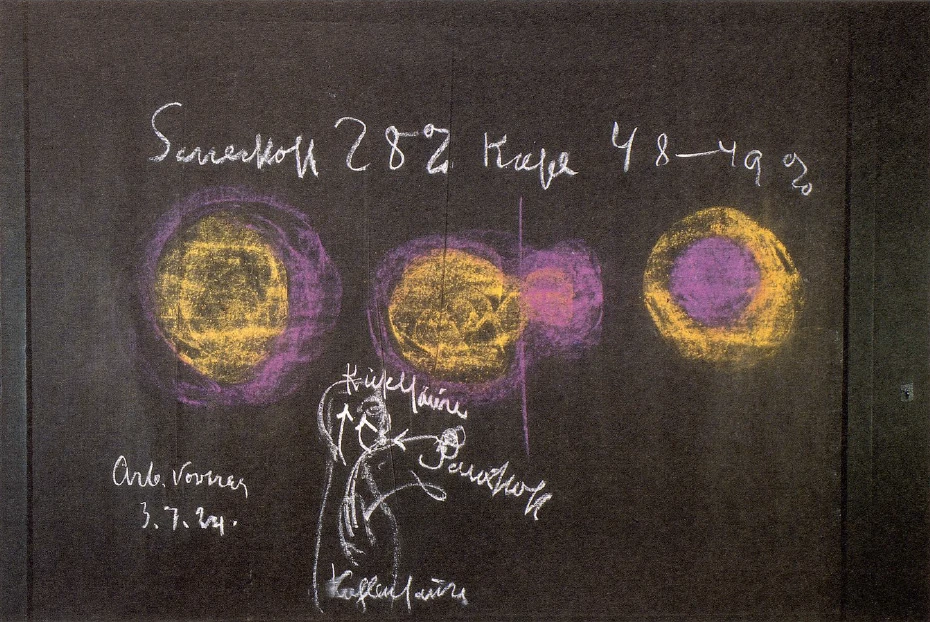 Sauerstoff 28% Kiesel 48–49%
Kieselsäure
Sauerstoff
Arb. Vortrag
3.7.24.
Kohlensäure